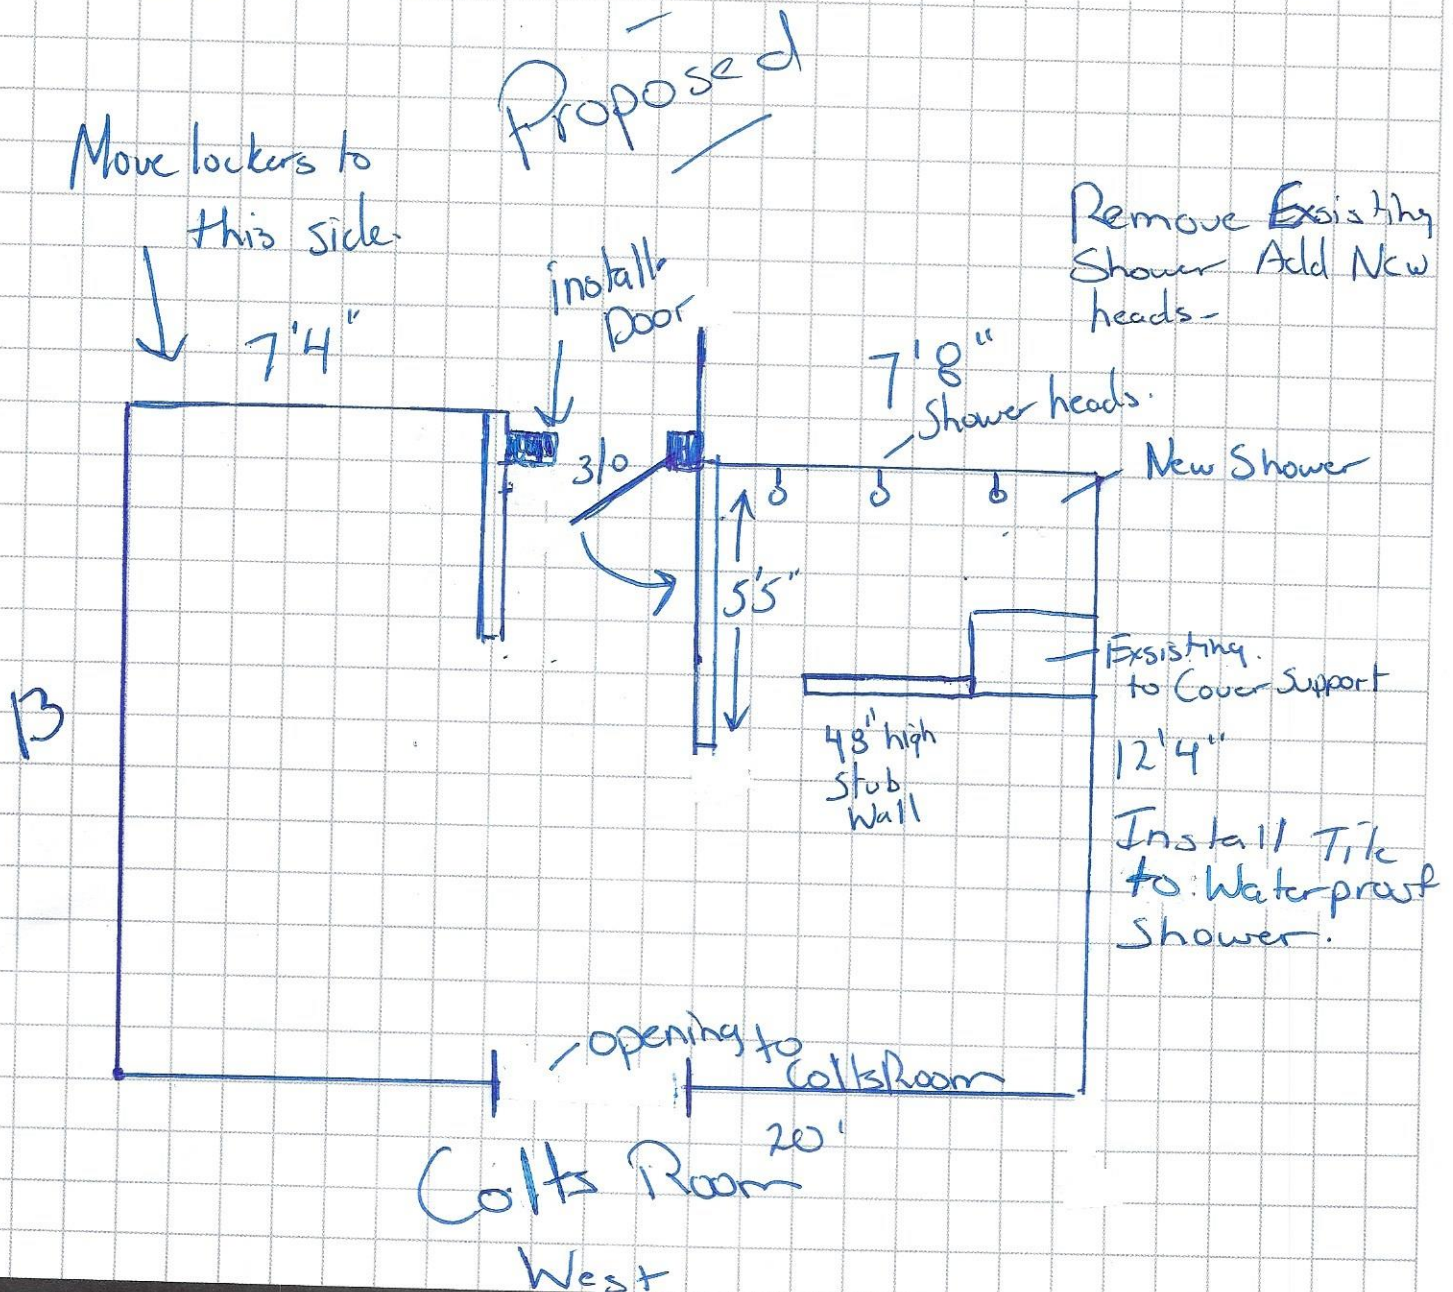 Proposed
Move lockers to
this side.
7'4"
install
Door
Remove Exsisting
Shower Add New
heads-
7'8"
Shower heads.
New Shower
3/0
5'5"
Exsisting.
to Cover Support
48" high
Stub
Wall
13
12'4"
Install Tile
to Waterproof
Shower.
opening to
Colts Room
20'
Colts Room
West